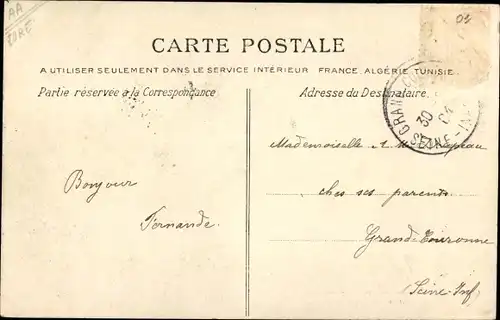 AA
RARE
04
CARTE POSTALE
A UTILISER SEULEMENT DANS LE SERVICE INTÉRIEUR FRANCE, ALGÉRIE, TUNISIE.
Partie réservée à la Correspondance
Adresse du Destinataire.
GRAND-COU
30
04
SEINE-INF
Mademoiselle A.
Bonjour
chez ses parents
Fernande.
Grand-Couronne
Seine-Inf